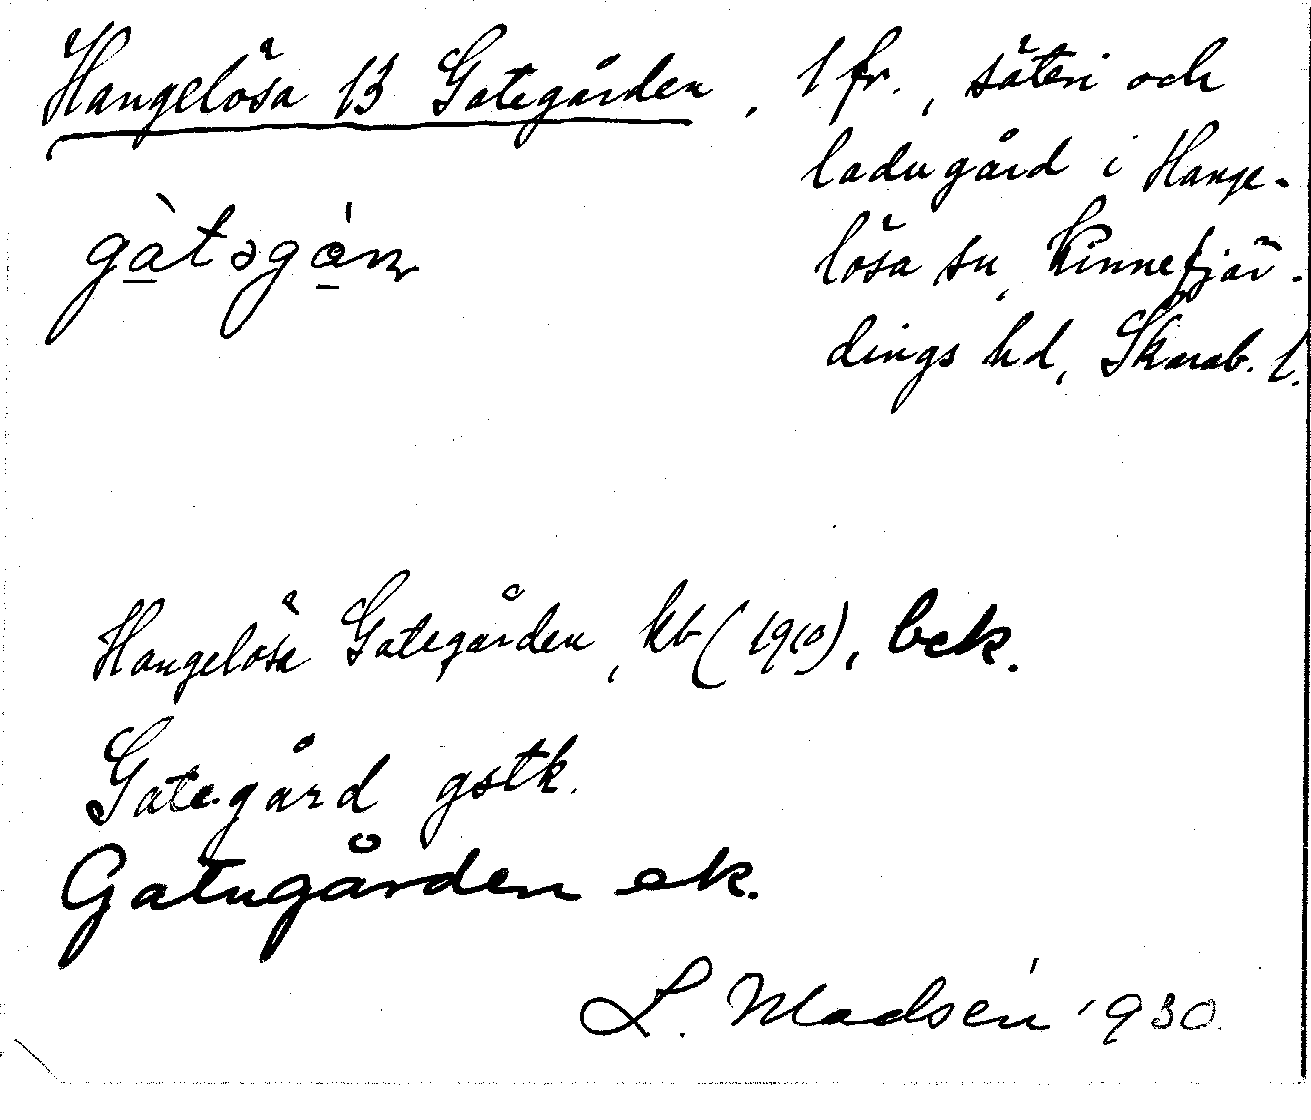 Hangelösa 13 Gategården, 1 fr., säteri och
ladugård i Hange-
lösa sn, Kinnefjär-
dings hd, Skarab. l.
gàtəgán
Hangelösa Gategården, kb (1910), bek.
Gategård gstk.
Gatugården ek.
L. Madsén 1930